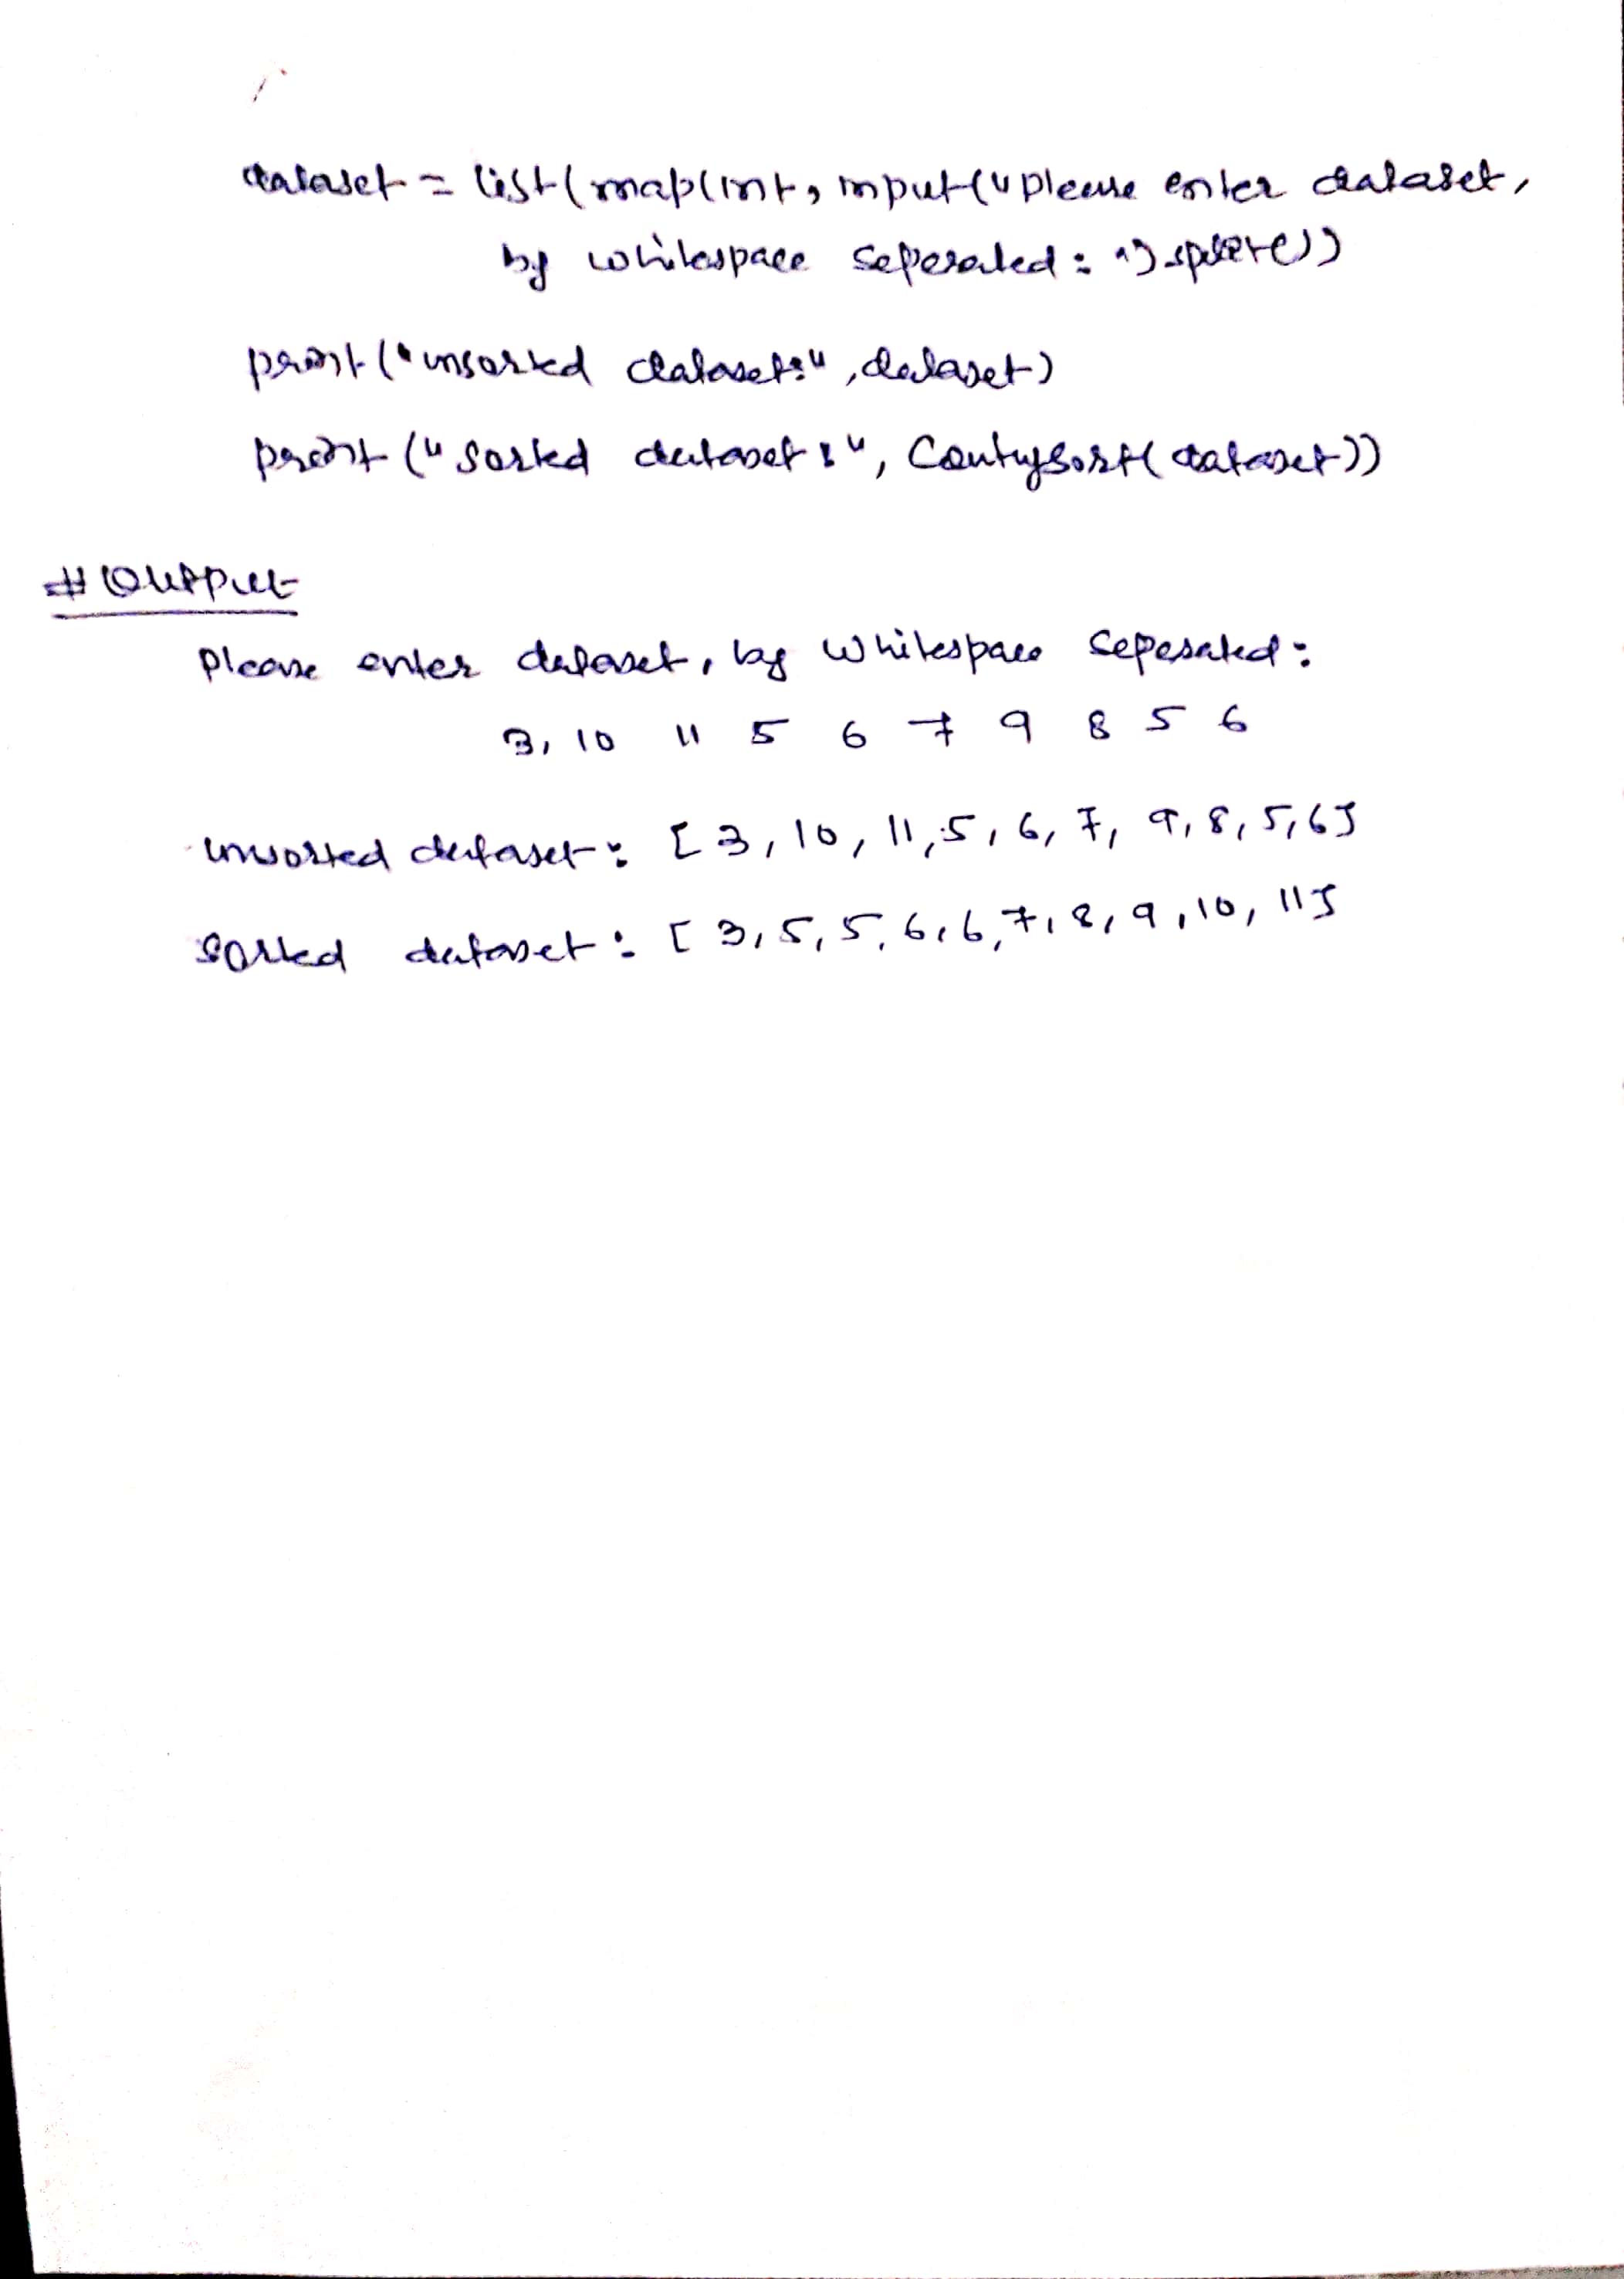 dataset = list(map(int, input("please enter dataset,
by whitespace seperated: ").split())
print("unsorted dataset:", dataset)
print("sorted dataset:", Countysort(dataset))
# Output
please enter dataset, by whitespace seperated:
3, 10 11 5 6 7 9 8 5 6
unsorted dataset: [3, 10, 11, 5, 6, 7, 9, 8, 5, 6]
sorted dataset: [3, 5, 5, 6, 6, 7, 8, 9, 10, 11]